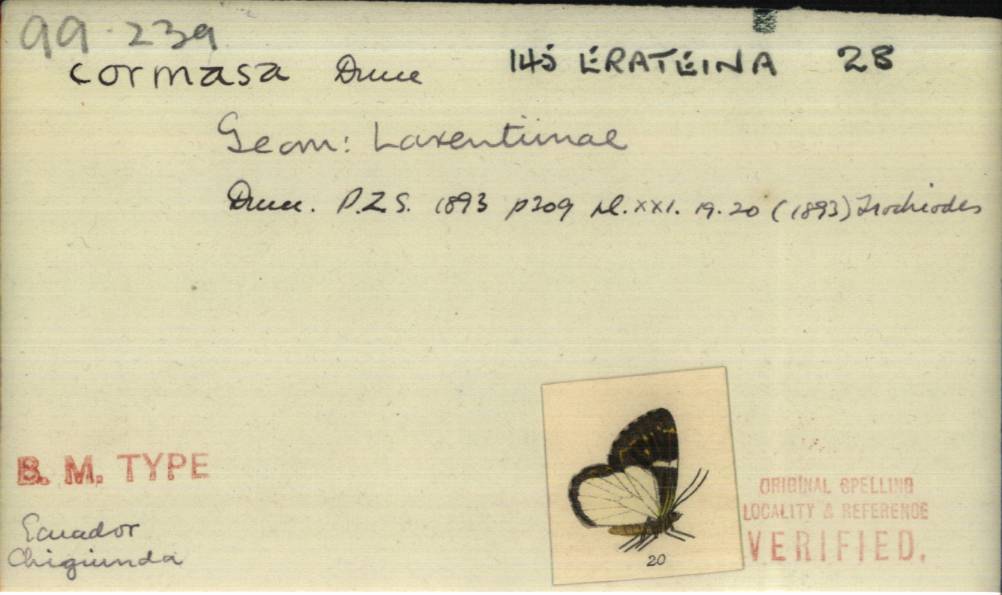 99.239
cormasa Druce 145 ERATEINA 28
Geom: Larentiinae
Druce. P.Z.S. 1893 p309 pl.xxi. 19.20 (1893) Trochiodes
B. M. TYPE
Ecuador
Chiguinda
20
ORIGINAL SPELLING
LOCALITY & REFERENCE
VERIFIED.